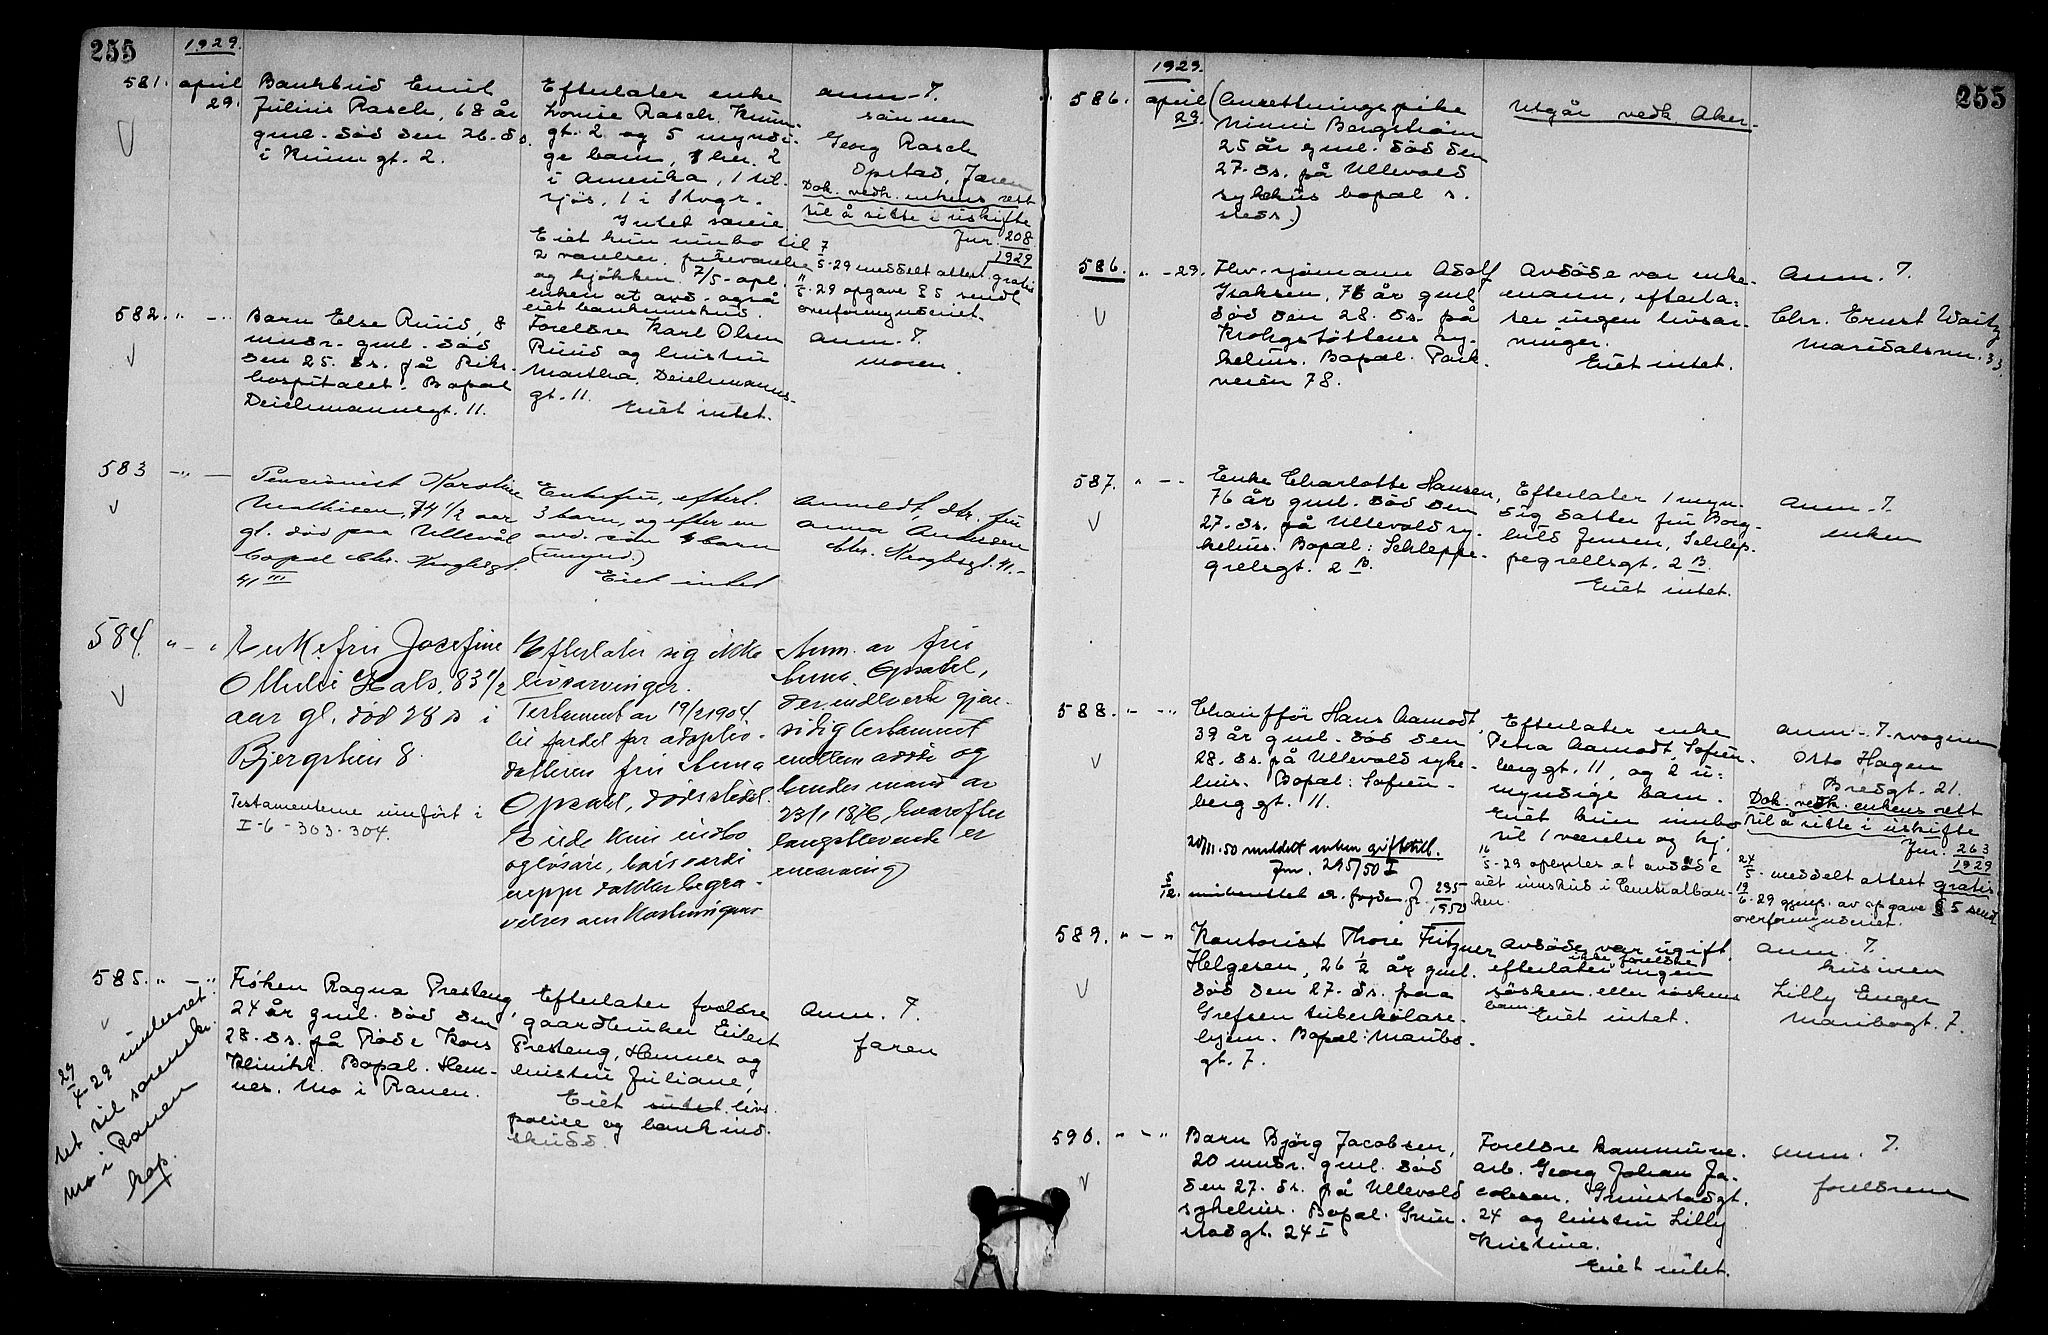 255
1929.
581. april 29.
Bankbud Emil
Julius Rasch, 68 år
gml. død den 26. ds.
i Krum gt. 2.
Efterlater enke
Louise Rasch, Krum-
gt. 2 og 5 myndi-
ge barn, her. 2
i Amerika, 1 til-
sjøs, 1 i Stvgr.
Intet særeie
Eiet kun innbo til
2 værelser, pikeværelse
og kjøkken. 7/5- opl.
enken at avd. også
eiet bankinnskud.
anm. T.
sønnen
Georg Rasch
Opstad, Jæren
Dok. vedk. enkens rett
til å sitte i uskifte
Jnr. 208
1929
7/5-29 meddelt attest gratis
-29 opgave § 5 sendt
overformynderiet.
582. " - "
Barn Else Ruud, 8
mndr. gml. død
den 25. ds. på Riks-
hospitalet. Bopæl
Deichmannsgt. 11.
Foreldre Karl Olsen
Ruud og hustru
Martha, Deichmanns-
gt. 11.
Eiet intet.
anm. T.
moren.
583 - " -
Pensionist Karoline
Mathisen, 74 1/2 aar
gl. død paa Ullevål
bopæl Chr. Kroghsgt.
41 III
Enkefru, efterl.
3 barn, og efter en
avd. søn 4 barn
(umynd.)
Eiet intet
Anmeldt, dtr. fru
Anna Andersen
Chr. Kroghsgt. 41.-
584. " - "
Enkefru Josefine
Omulie Hals, 83 1/2
aar gl. død 28 ds i
Bjergstien 8.
Testamenterne innført i
I-6-303-304.
Efterlater sig ikke
livsarvinger.
Testament av 19/2 1904
til fordel for adoptiv-
datteren fru Anna
Opsahl, dødsstedet.
Eiede kun indbo
og løsøre, hvis værdi
neppe dækker begra-
velses omkostningene
Anm. av fru
Anna Opsahl,
der indleverte gjen-
sidig testament
mellem avdøde og
hendes mand av
23/1 1876, hvorefter
længstlevende er
enearving
585. " - "
Frøken Ragna Presteng,
24 år gml. død den
28. ds. på Røde Kors
Klinikk. Bopæl. Hem-
nes. Mo i Ranen.
29/4-29 underret-
tet til sorenskr.
Mo i Ranen
kop.
Efterlater foreldre
gaardbruker Eilert
Presteng, Hemnes og
hustru Juliane,
Eiet intet livs.
police og bankind.
skudd.
Anm. T.
faren
1929.
255
586. april 29.
(Anrettningspike
Minni Bergstrøm
25 år gml. død den
27. ds. på Ullevold
sykehus bopæl s.
steds.)
Utgår vedk. Aker.
586. " - 29.
Fhv. sjømann Adolf
Isaksen, 76 år gml
død den 28. ds. på
Krohgstøttens sy-
kehus. Bopæl. Park-
veien 78.
Avdøde var enke-
mann, efterla-
ter ingen livsar-
vinger.
Eiet intet.
Anm. T.
Chr. Ernst Waitz
Maridalsvn. 33.
587. " - -
Enke Charlotte Hansen,
76 år gml. død den
27. ds. på Ullevold sy-
kehus. Bopæl: Schleppe-
grellsgt. 2 B.
Efterlater 1 myn-
dig datter fru Borg-
hild Jensen, Schlep-
pegrellsgt. 2 B.
Eiet intet.
Anm. T.
enken
588. - - "
Chauffør Hans Aamodt,
39 år gml. død den
28. ds. på Ullevold syke-
hus. Bopæl: Sofien-
berggt. 11.
20/11.50 meddelt enken giftetill.
Jnr. 295/50 I
5/12.
Efterlater enke
Petra Aamodt, Sofien-
berggt. 11, og 2 u-
myndige barn.
Eiet kun innbo
til 1 værelse og kj.
16/5-29 oplystes at avdøde
eiet innskud i Centralban-
ken.
Anm. T. svogeren
Otto Hagen
Bredgt. 21.
Dok. vedk. enkens rett
til å sitte i uskifte
Jnr. 263
1929
24/5. meddelt attest gratis.
19/6-29 gjenp. av opgave § 5 sendt
overformynderiet.
589. " - "
Kontorist Thore Fritzner
Helgesen, 26 1/2 år gml.
død den 27. ds. paa
Grefsen tuberkulose-
hjem. Bopæl: Maribo-
gt. 7.
Avdøde var ugift.
efterlater ikke foreldre ingen
søsken eller søskens
barn Eiet intet.
Anm. T.
kusinen
Lilly Enger
Maribogt. 7.
590. " - "
Barn Bjørg Jacobsen,
20 mndr. gml. død
den 27. ds. på Ullevold
sykehus. Bopæl. Grim-
stadgt. 24 I
Foreldre kommune-
arb. Georg Johan Ja-
cobsen, Grimstadgt.
24 og hustru Lilly
Kristine.
Eiet intet.
Anm. T.
foreldrene